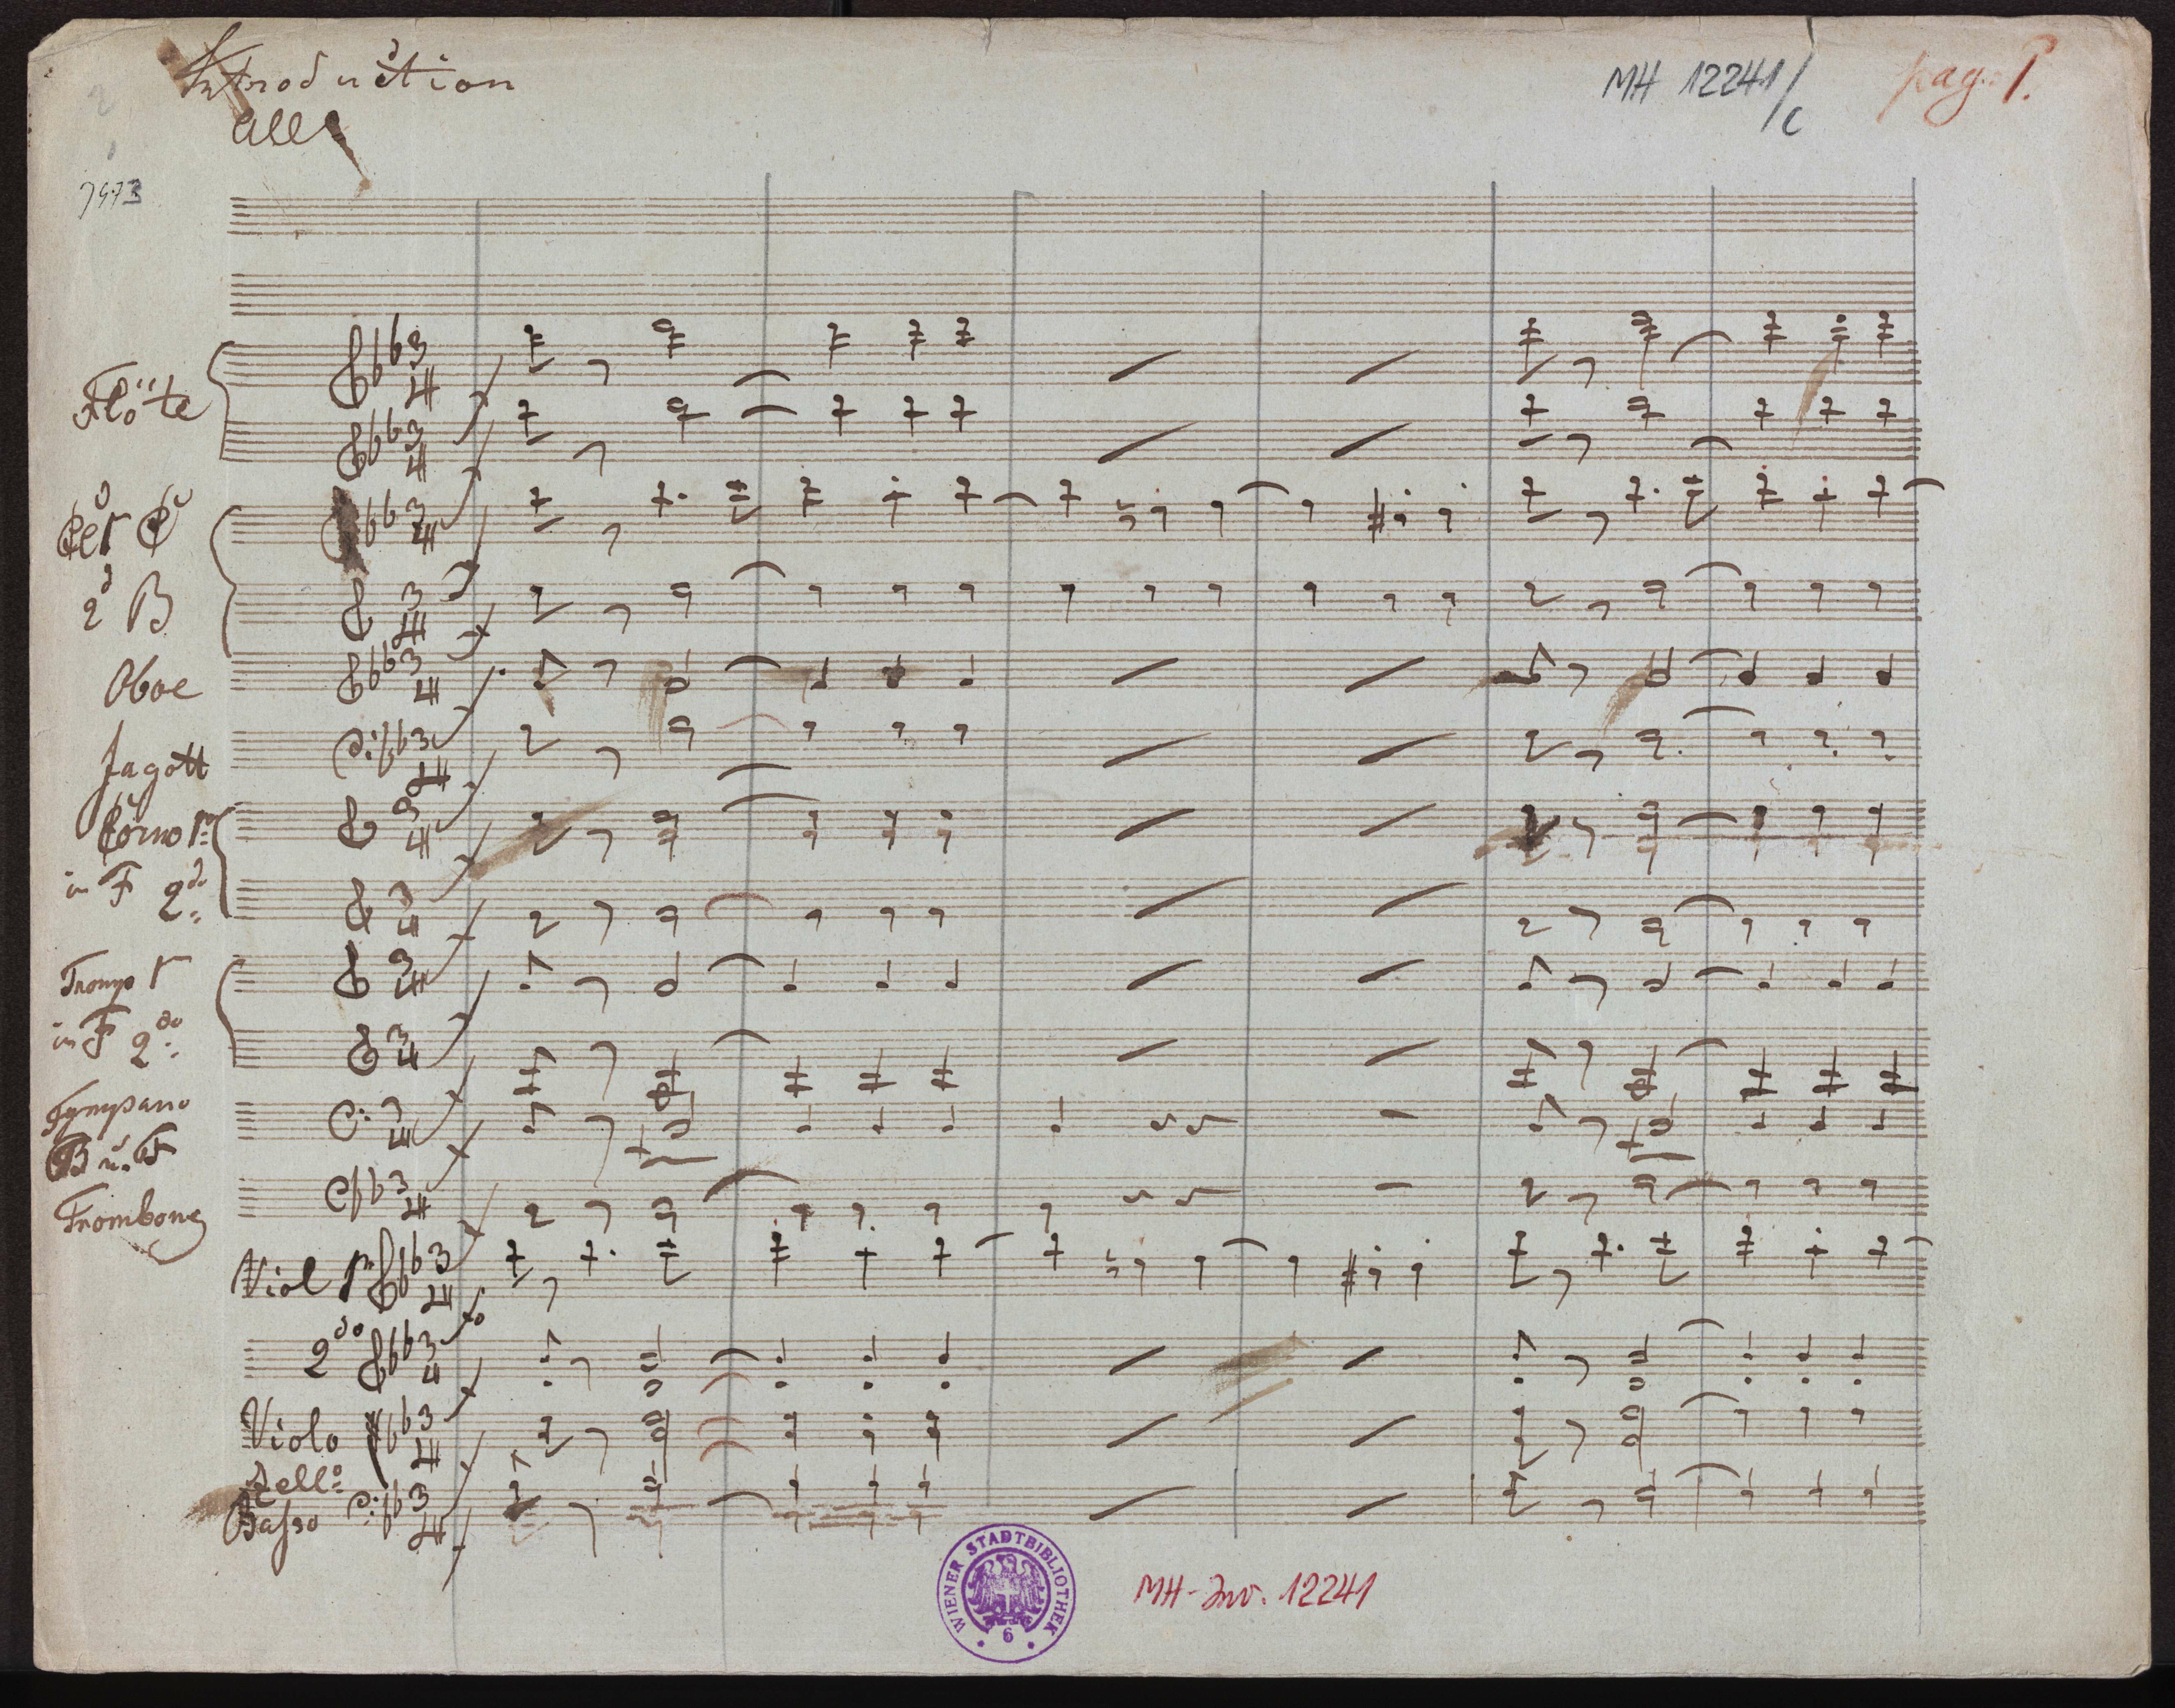 Introduction
MH 12241/c
pag. 1.
All
7473
Flöte
Cl 1 C
2 B
Oboe
Fagott
Corno 1
in F 2do
Trompo 1
in F 2do
Tympano
B u. F
Trombone
Viol 1
2do
Viola
Cello
Basso
WIENER STADTBIBLIOTHEK
6
MH-Inv. 12241